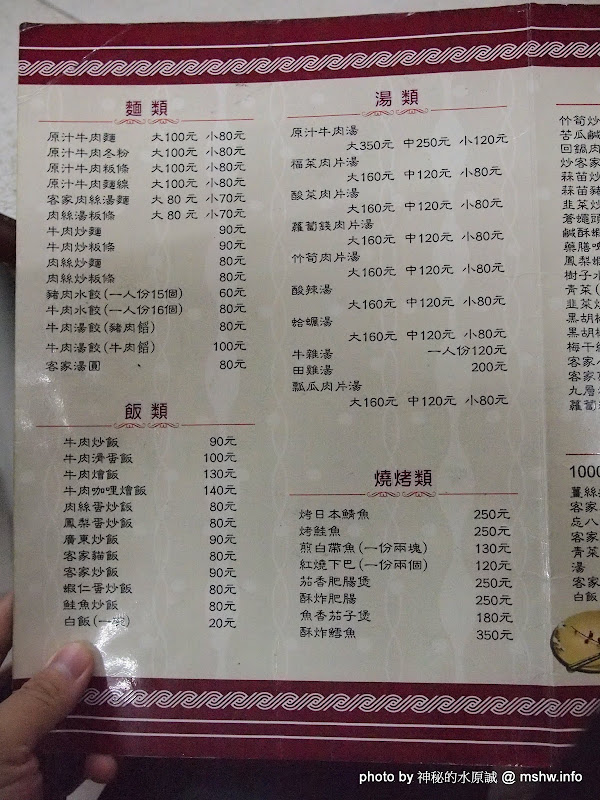 麵類
原汁牛肉麵 大100元 小80元
原汁牛肉冬粉 大100元 小80元
原汁牛肉粄條 大100元 小80元
原汁牛肉麵線 大100元 小80元
客家肉絲湯麵 大80元 小70元
肉絲湯粄條 大80元 小70元
牛肉炒麵 90元
牛肉炒粄條 90元
肉絲炒麵 80元
肉絲炒粄條 80元
豬肉水餃(一人份15個) 60元
牛肉水餃(一人份16個) 80元
牛肉湯餃(豬肉餡) 80元
牛肉湯餃(牛肉餡) 100元
客家湯圓 80元
飯類
牛肉炒飯 90元
牛肉滑蛋飯 100元
牛肉燴飯 130元
牛肉咖哩燴飯 140元
肉絲蛋炒飯 80元
鳳梨蛋炒飯 80元
廣東炒飯 90元
客家貓飯 80元
客家炒飯 90元
蝦仁蛋炒飯 80元
鮭魚炒飯 80元
白飯(一 20元
湯類
原汁牛肉湯
大350元 中250元 小120元
福菜肉片湯
大160元 中120元 小80元
酸菜肉片湯
大160元 中120元 小80元
蘿蔔錢肉片湯
大160元 中120元 小80元
竹筍肉片湯
大160元 中120元 小80元
酸辣湯
大160元 中120元 小80元
蛤蠣湯
大160元 中120元 小80元
牛雜湯 一人份120元
田雞湯 200元
瓢瓜肉片湯
大160元 中120元 小80元
燒烤類
烤日本鯖魚 250元
烤鮭魚 250元
煎白帶魚(一份兩塊) 130元
紅燒下巴(一份兩個) 120元
茄香肥腸煲 250元
酥炸肥腸 250元
魚香茄子煲 180元
酥炸鱈魚 350元
竹筍炒
苦瓜鹹
回鍋肉
炒客家
韭菜炒
蒼蠅頭
鹹酥蝦
藥膳
鳳梨蝦
樹子水
青菜(
韭菜炒
黑胡椒
黑胡椒
梅干
客家
客家
九層
蘿蔔
1000
薑絲
客家
忘八
客家
青菜
湯
客家
白飯
photo by 神秘的水原誠 @ mshw.info